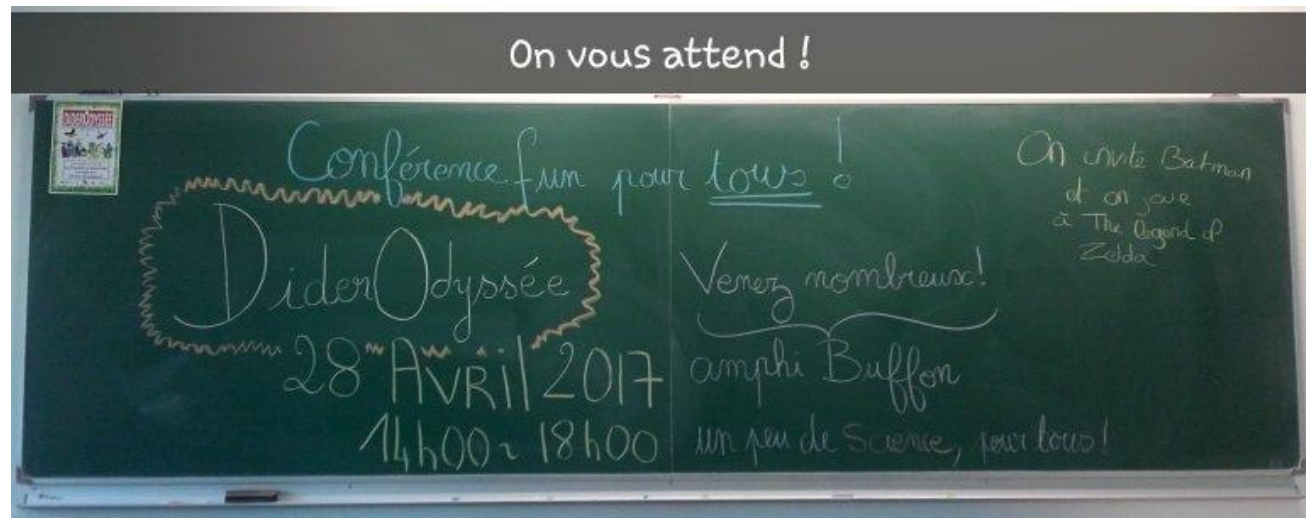 On vous attend !
DIDERODYSSÉE
Conférence fun pour tous !
DiderOdyssée
28 Avril 2017
14h00 ~ 18h00
Venez nombreux!
amphi Buffon
un peu de Science, pour tous!
On invite Batman
et on joue
à The Legend of
Zelda